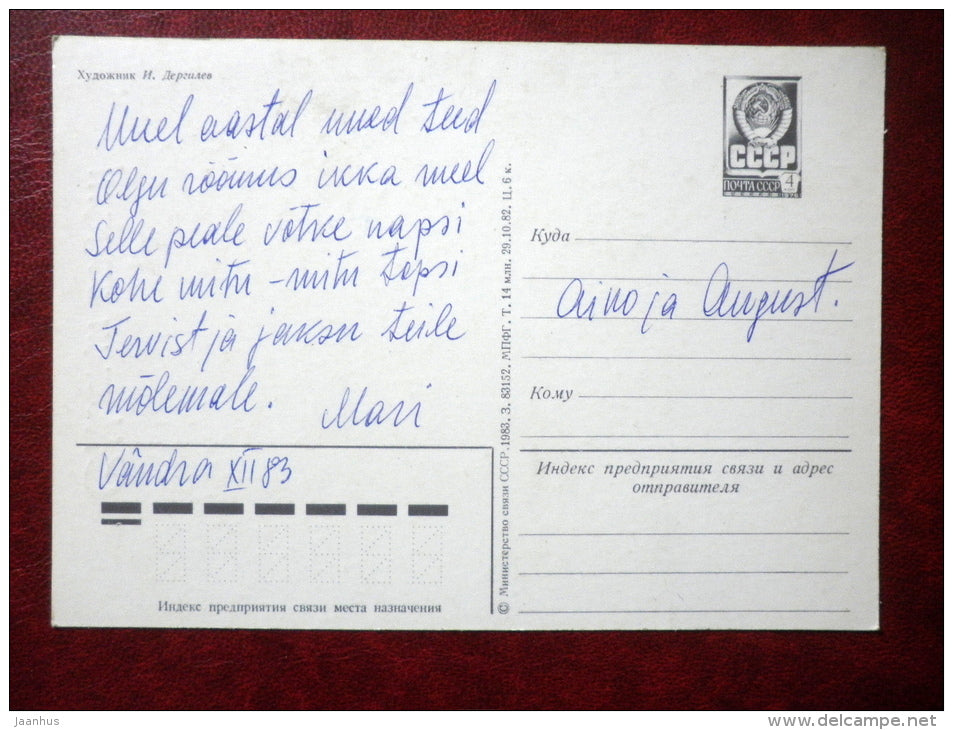 Художник И. Дергилев
Uuel aastal uued teed
Olgu rõõmus ikka meel
Selle peale võtke napsi
Kohe mitu-mitu topsi
Tervist ja jaksu teile
mõlemale. Mari
Vändra XII 83
Индекс предприятия связи места назначения
© Министерство связи СССР. 1983. З. 83152. МПФГ. Т. 14 млн. 29.10.82. Ц. 6 к.
СССР
ПОЧТА СССР 4
Куда
Aino ja August.
Кому
Индекс предприятия связи и адрес
отправителя
Jaanhus
www.delcampe.net